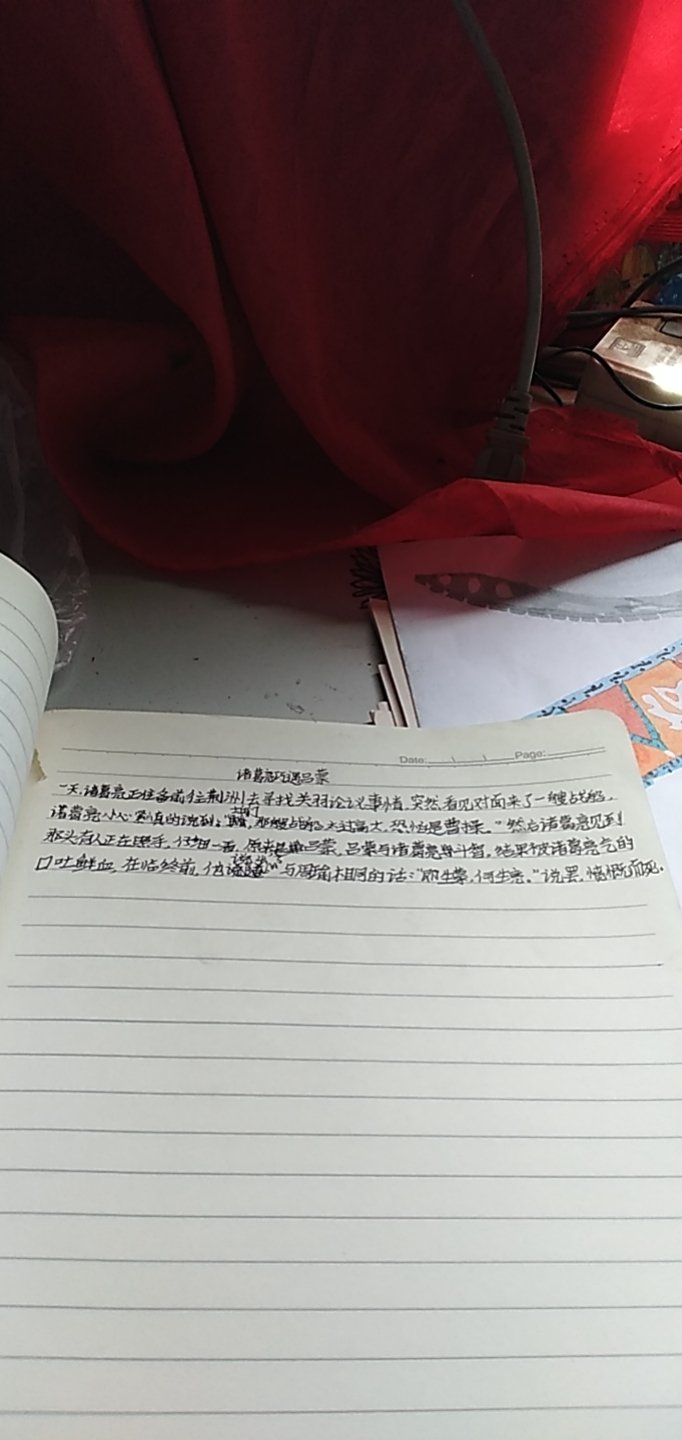 Date: Page:
诸葛亮巧遇吕蒙
一天,诸葛亮正准备前往荆州去寻找关羽论议事情,突然,看见对面来了一艘战船,
诸葛亮小心翼翼的说到:"那艘战船太过高大,恐怕是曹操。"然后诸葛亮见到
那头有人正在挥手,仔细一看,原来是吕蒙,吕蒙与诸葛亮斗智,结果被诸葛亮气的
口吐鲜血,在临终前,他与周瑜相同的话:"即生蒙,何生亮。"说罢,愤慨而死.